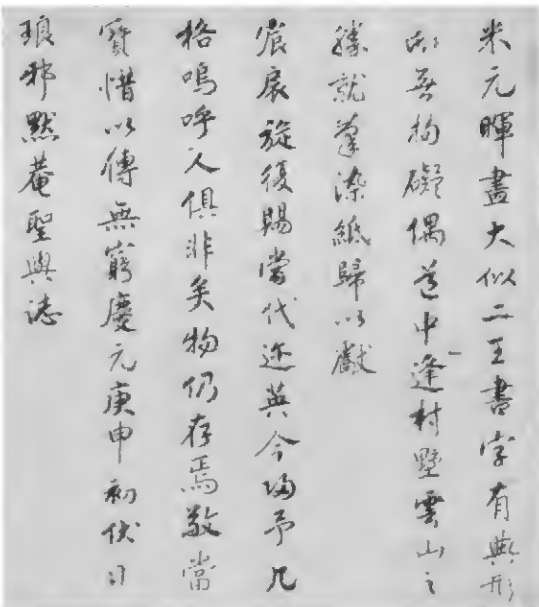 米元暉畫大似二王書字有典形
而無拘礙偶道中逢村墅雲山之
勝就筆染紙歸以獻
宸扆旋復賜當代近英今歸予几
格嗚呼人俱非矣物仍存焉敬當
寶惜以傳無窮慶元庚申初伏日
琅邪默菴聖與誌